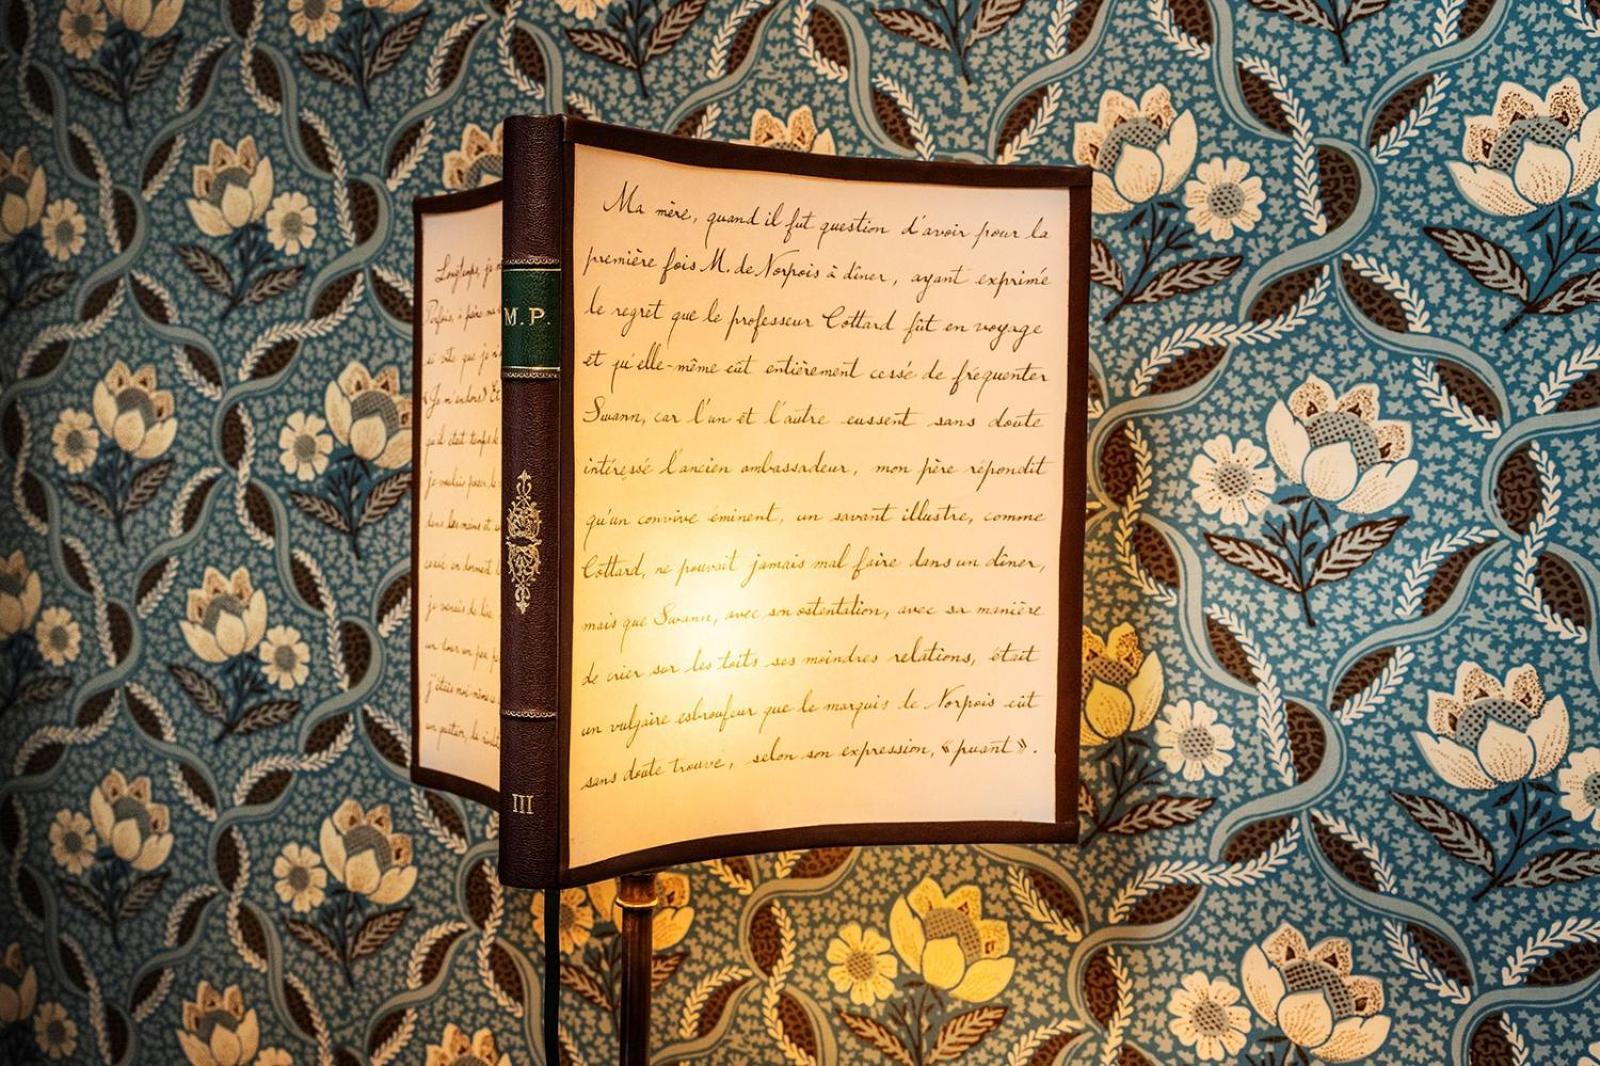 Longtemps, je m
Parfois, à peine ma
si vite que je n
« Je m'endors » Et
qu'il était temps de
je voulais poser le
dans les mains et
cessé en dormant
je venais de lire,
un tour un peu p
j'étais moi-même
un quatuor, la rivali
M.P.
III
Ma mère, quand il fut question d'avoir pour la
première fois M. de Norpois à dîner, ayant exprimé
le regret que le professeur Cottard fût en voyage
et qu'elle-même eût entièrement cessé de fréquenter
Swann, car l'un et l'autre eussent sans doute
intéressé l'ancien ambassadeur, mon père répondit
qu'un convive éminent, un savant illustre, comme
Cottard, ne pouvait jamais mal faire dans un dîner,
mais que Swann, avec son ostentation, avec sa manière
de crier sur les toits ses moindres relations, était
un vulgaire esbroufeur que le marquis de Norpois eût
sans doute trouvé, selon son expression, « puant ».